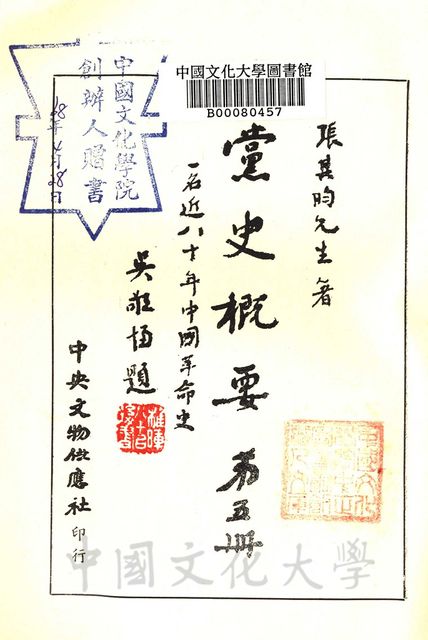 中國文化大學圖書館
B00080457
中國文化學院
創辦人贈書
張其昀先生著
黨史概要 第五冊
一名近八十年中國革命史
吳敬恆題
中央文物供應社 印行
中國文化大學